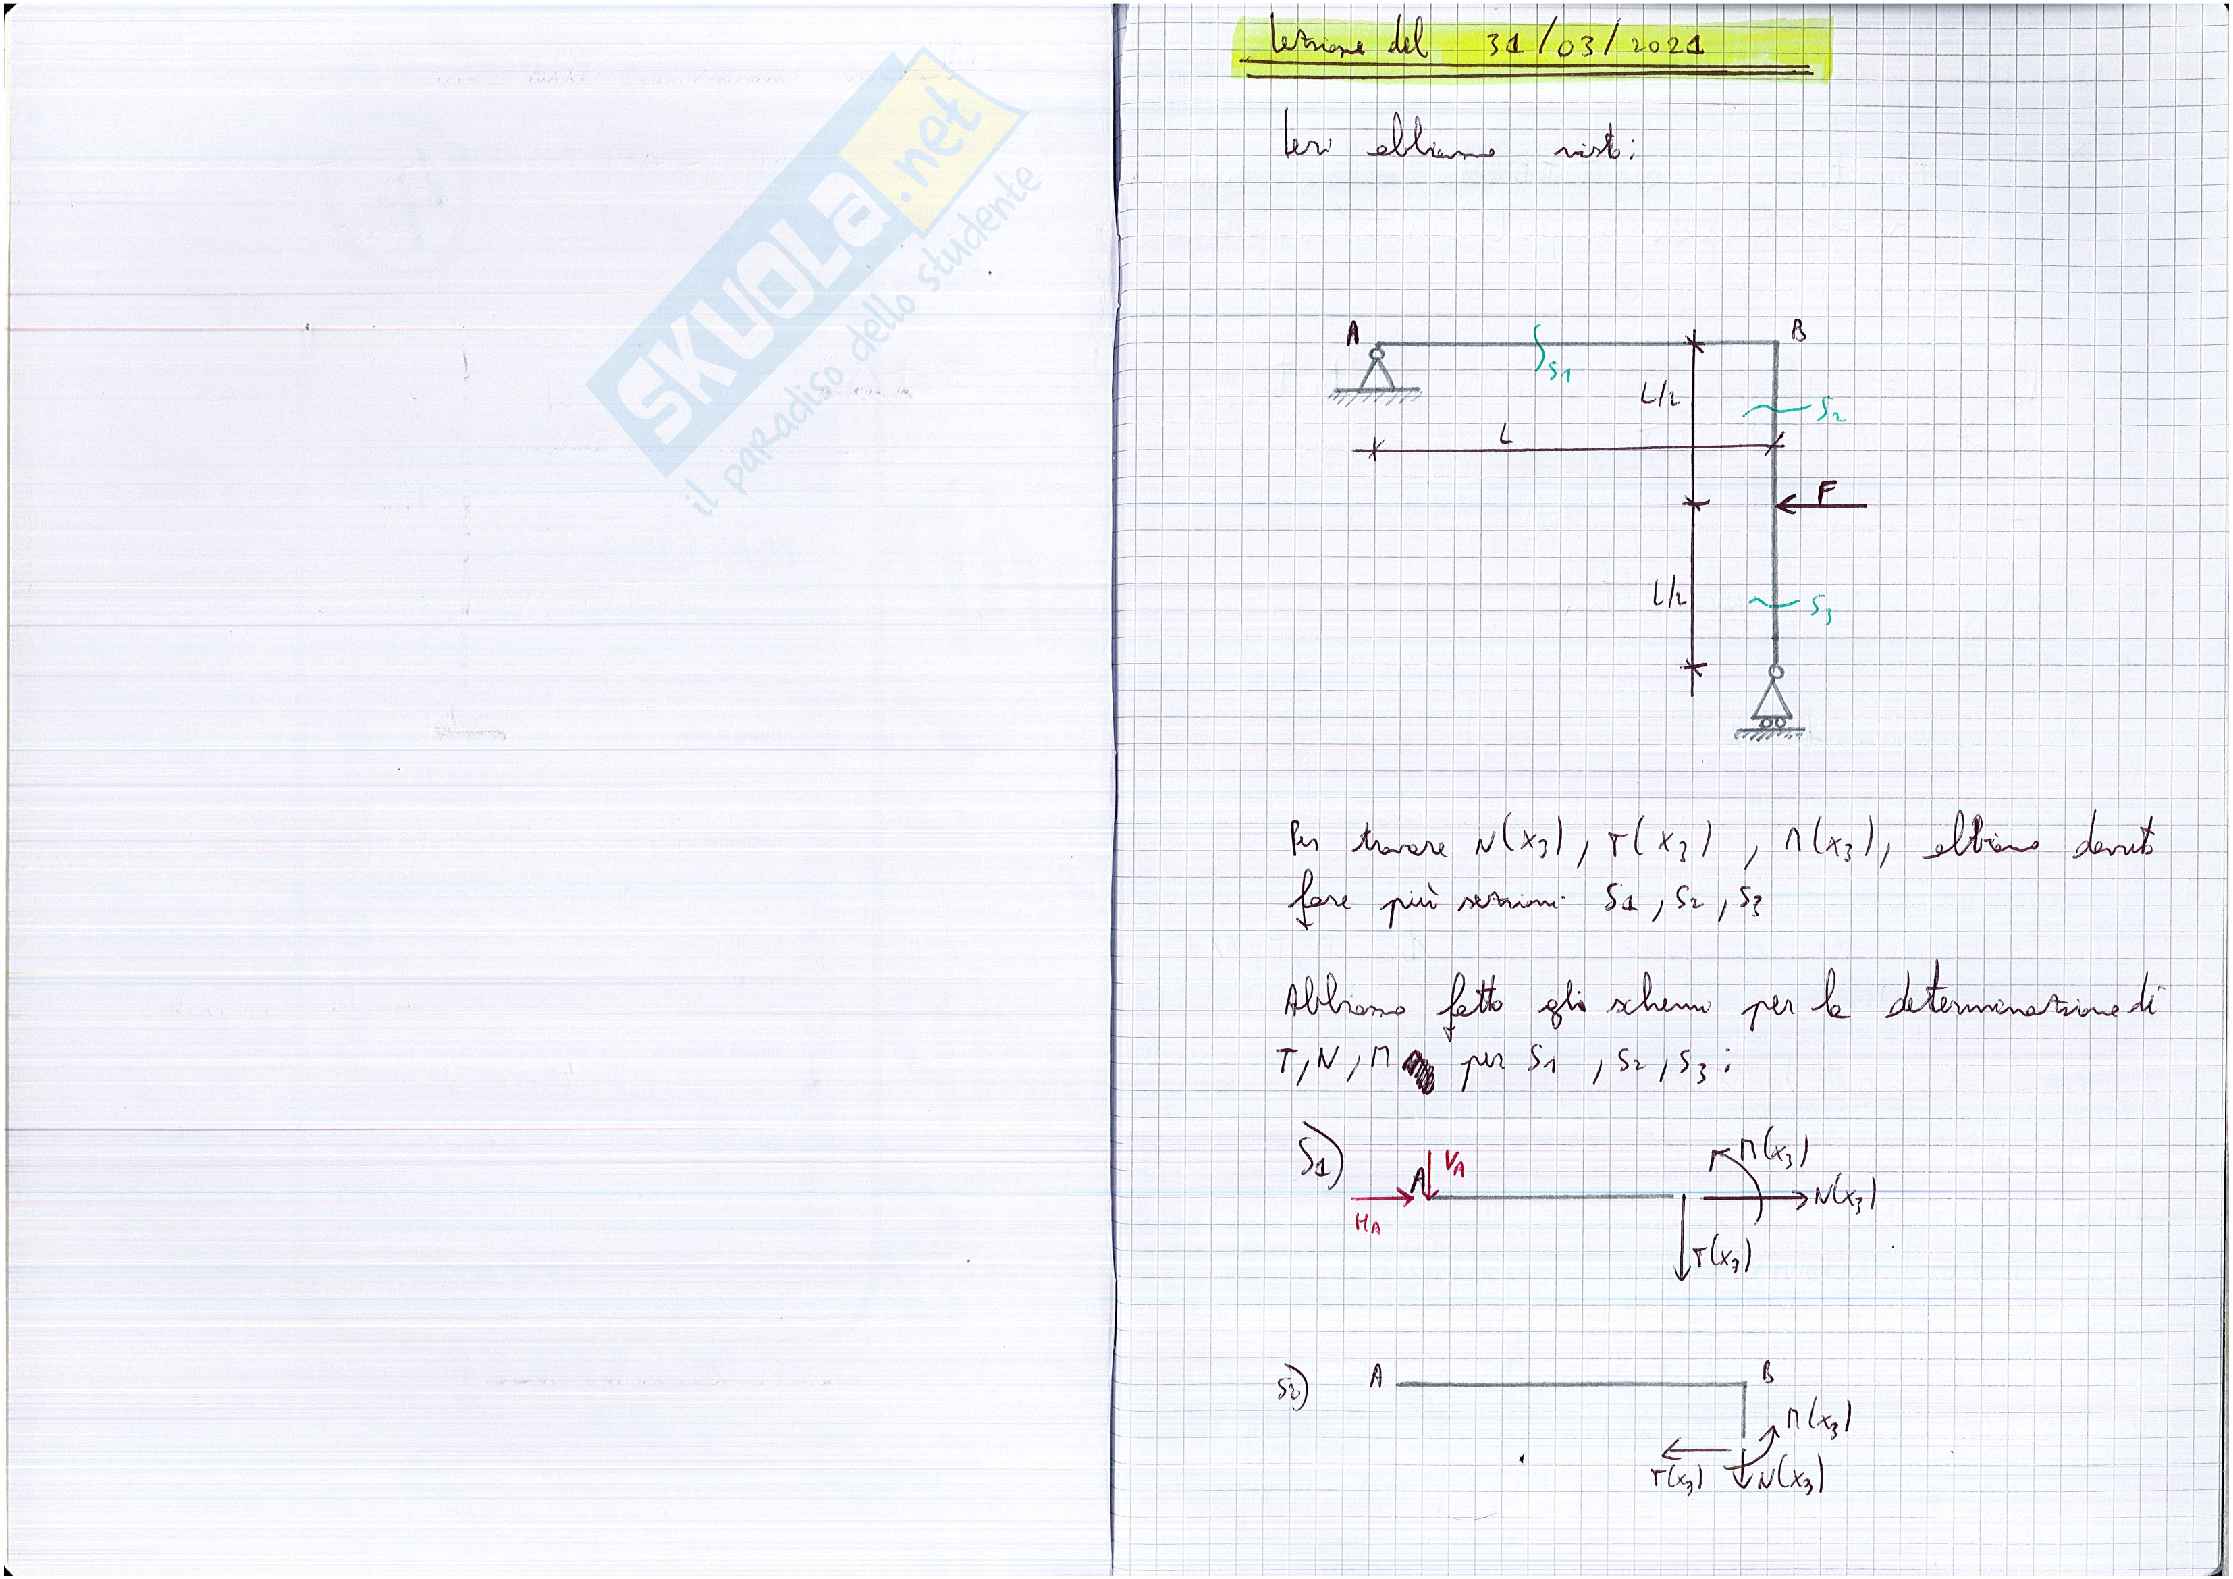 SKUOLA.net
il paradiso dello studente
Lezione del 31/03/2021
Ieri abbiamo visto:
A
B
S1
L/2
S2
L
F
L/2
S3
Per trovare N(x3), T(x3), M(x3), abbiamo dovuto
fare più sezioni S1, S2, S3
Abbiamo fatto gli schemi per la determinazione di
T, N, M per S1, S2, S3:
S1)
A
VA
HA
M(x3)
N(x3)
T(x3)
S2)
A
B
M(x3)
T(x3)
N(x3)